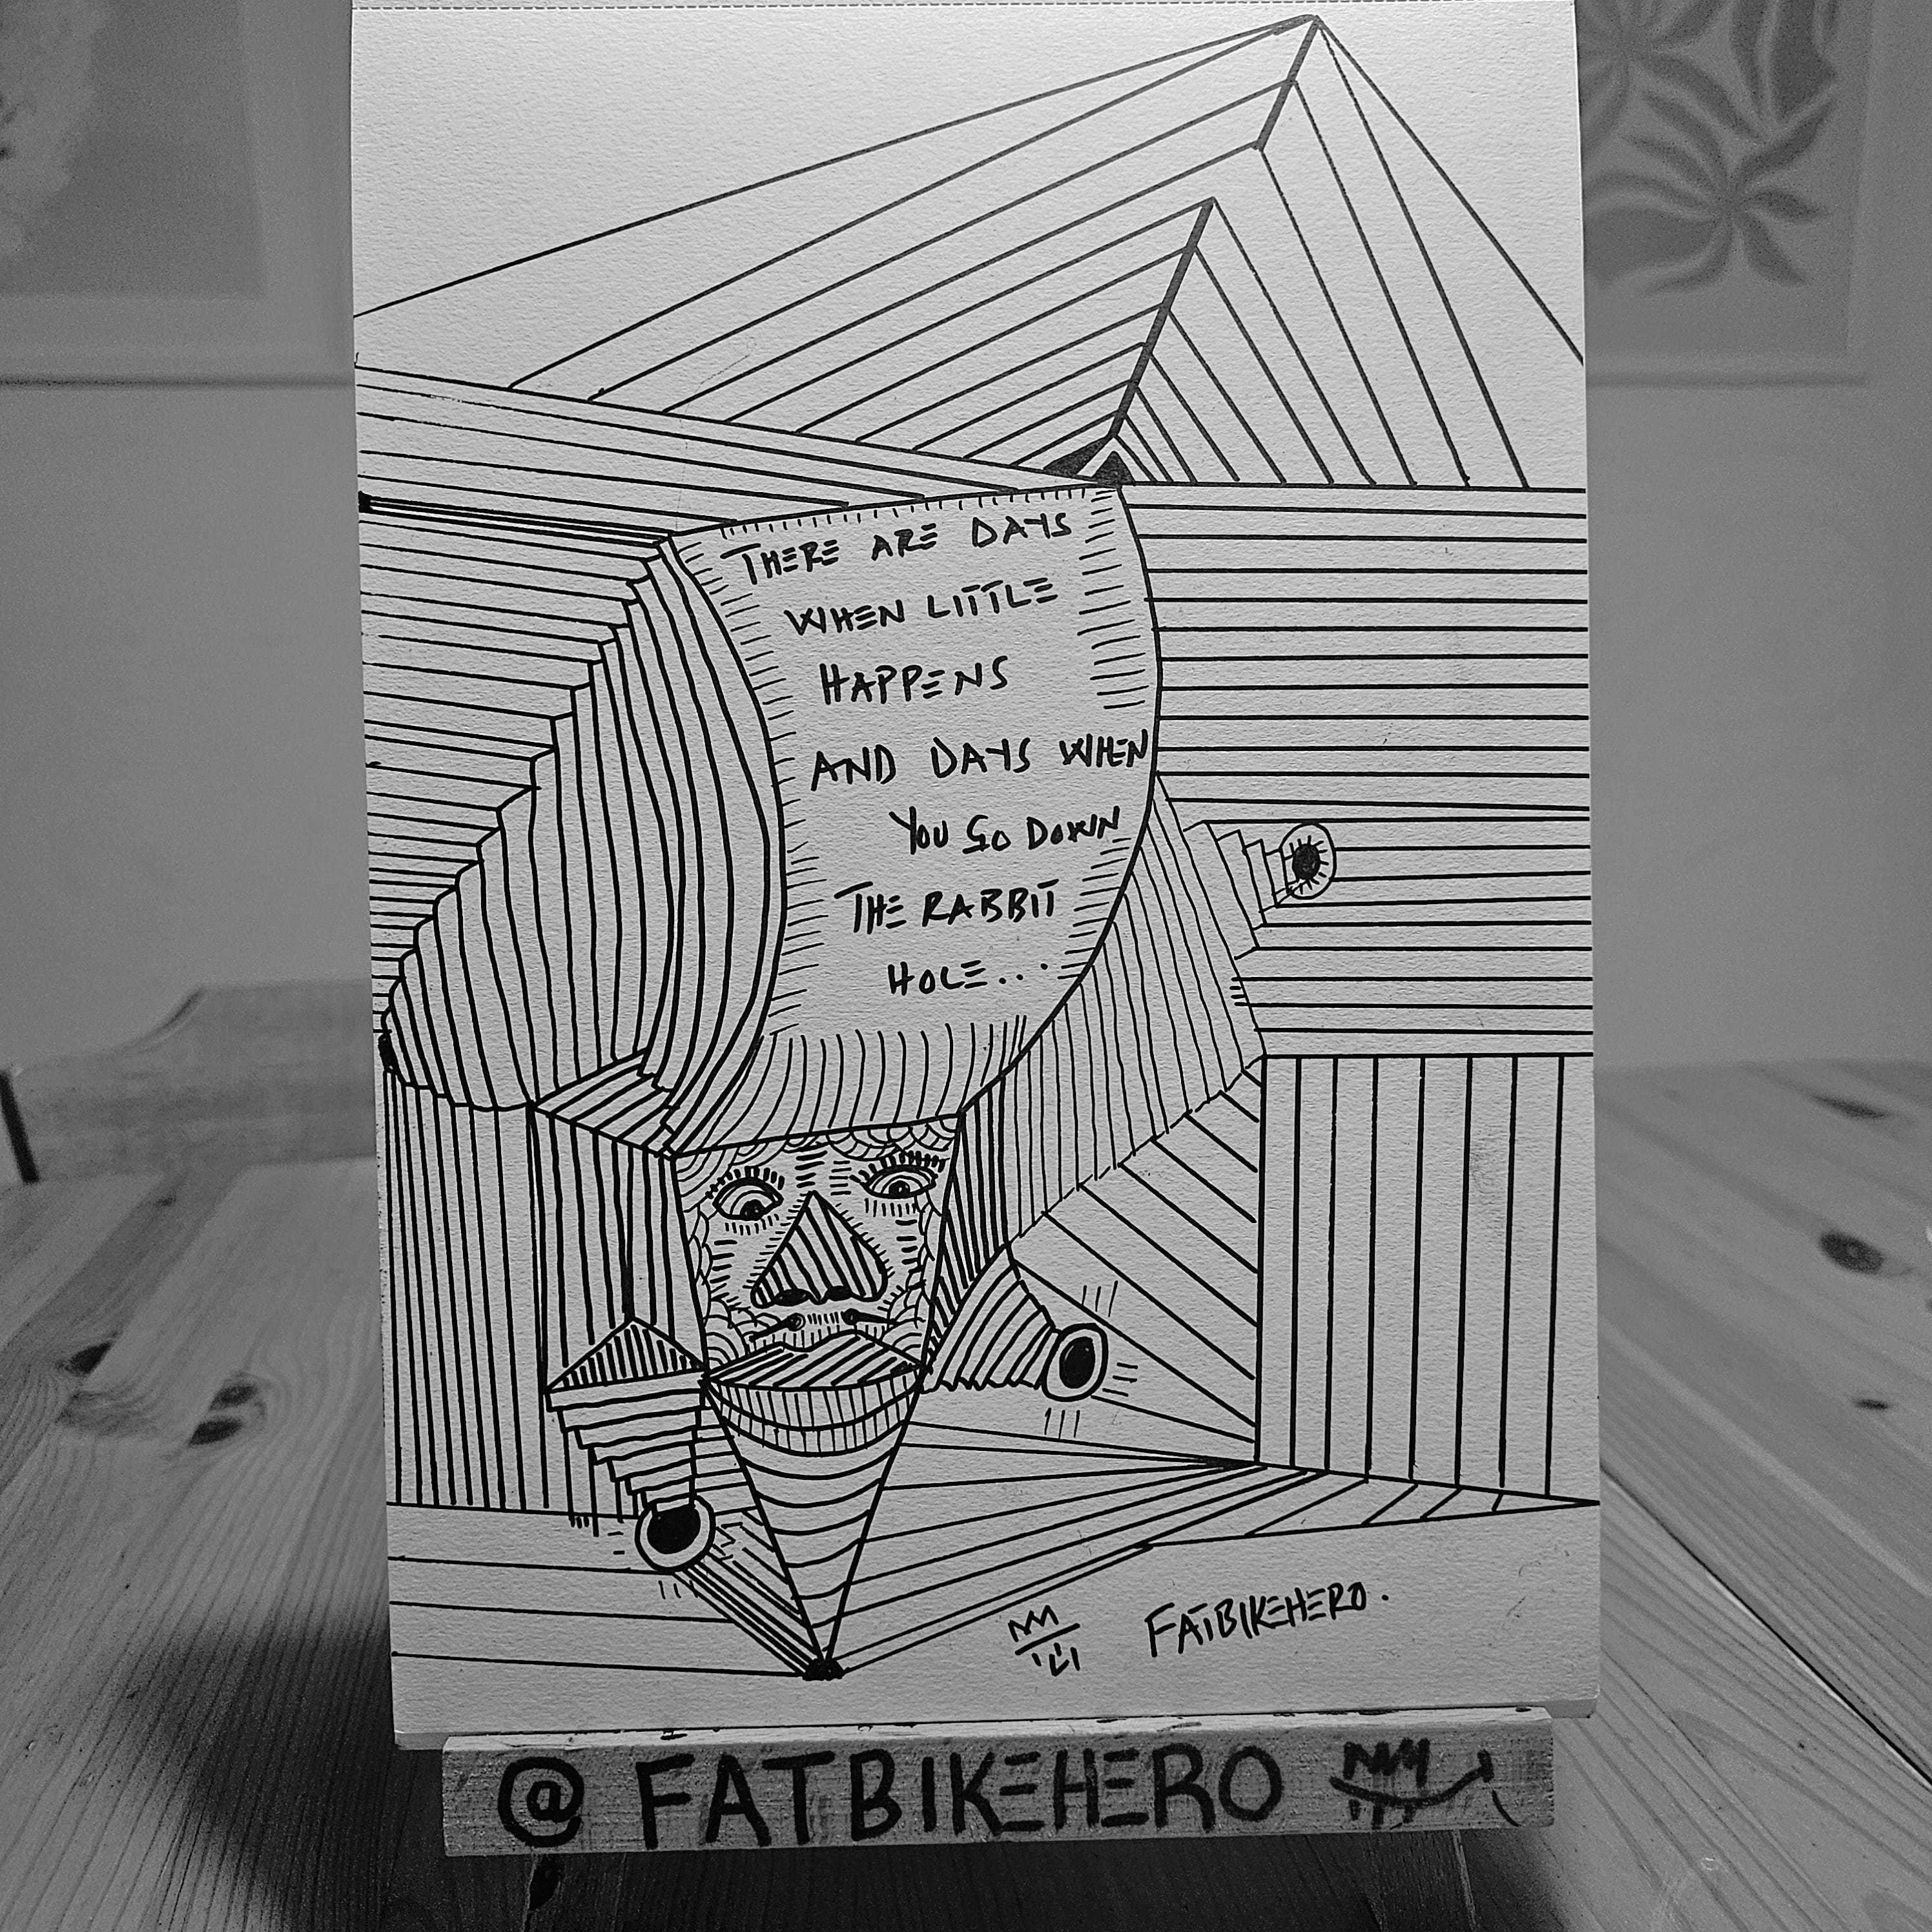 THERE ARE DAYS
WHEN LITTLE
HAPPENS
AND DAYS WHEN
YOU GO DOWN
THE RABBIT
HOLE...
FATBIKEHERO.
@FATBIKEHERO